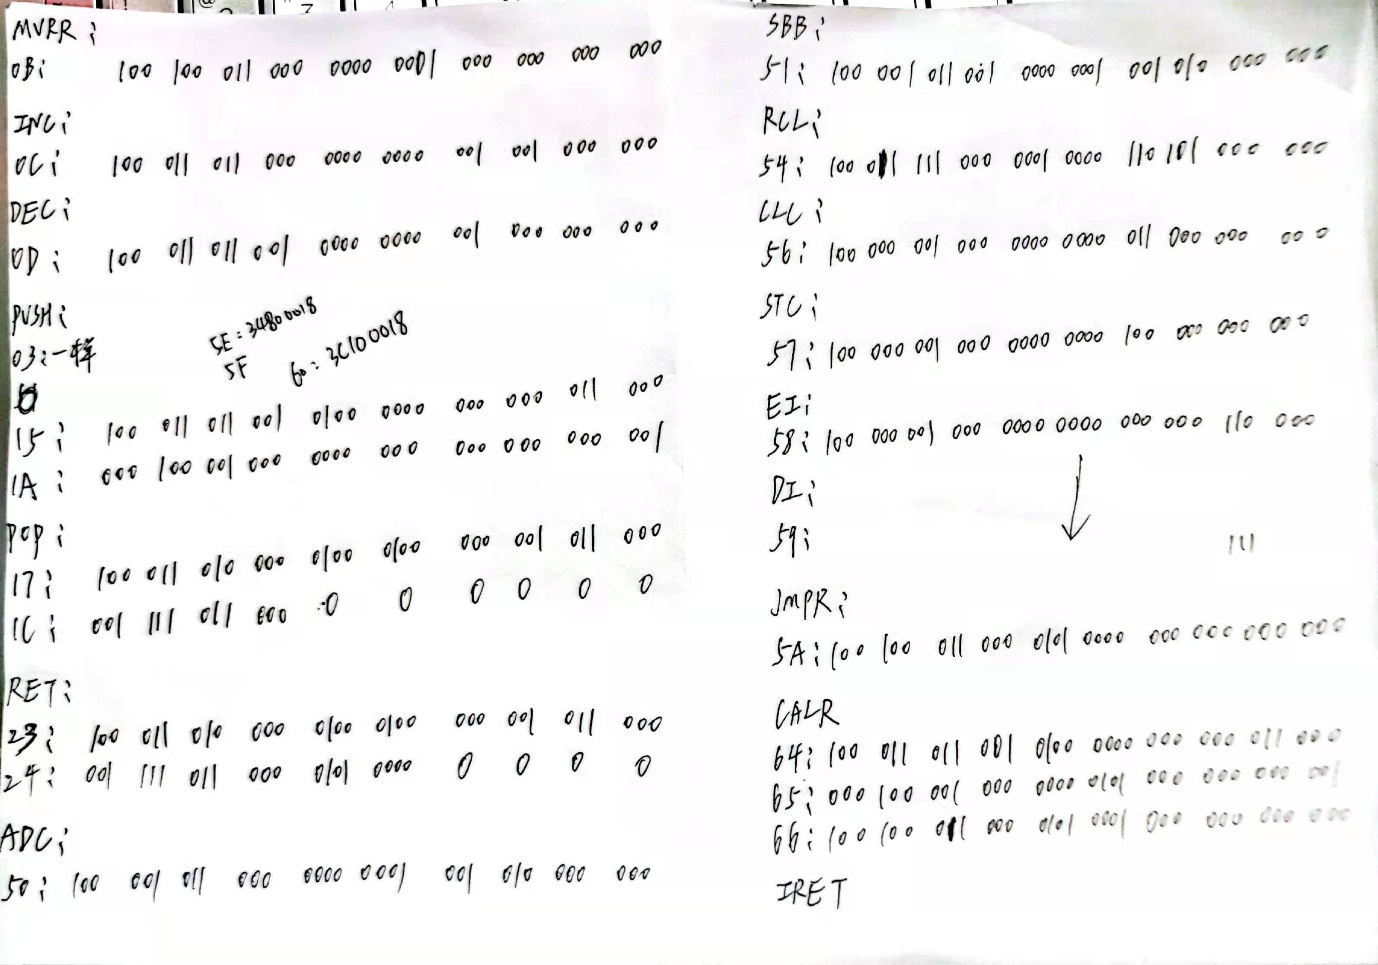 MVRR:
0B: 100 100 011 000 0000 0001 000 000 000 000
INC:
0C: 100 011 011 000 0000 0000 001 001 000 000
DEC:
0D: 100 011 011 001 0000 0000 001 000 000 000
PUSH:
03:一样
5E=34800018
5F
60:3C100018
15: 100 011 011 001 0100 0000 000 000 011 000
1A: 000 100 001 000 0000 000 000 000 000 001
POP:
17: 100 011 010 000 0100 0100 000 001 011 000
1C: 001 111 011 000 0 0 0 0 0 0
RET:
23: 100 011 010 000 0100 0100 000 001 011 000
24: 001 111 011 000 0101 0000 0 0 0 0
ADC:
50: 100 001 011 000 0000 0001 001 010 000 000
SBB:
51: 100 001 011 001 0000 0001 001 010 000 000
RCL:
54: 100 011 111 000 0001 0000 110 101 000 000
CLC:
56: 100 000 001 000 0000 0000 011 000 000 000
STC:
57: 100 000 001 000 0000 0000 100 000 000 000
EI:
58: 100 000 001 000 0000 0000 000 000 110 000
DI:
59: 111
JMPR:
5A: 100 100 011 000 0101 0000 000 000 000 000
CALR
64: 100 011 011 001 0100 0000 000 000 011 000
65: 000 100 001 000 0000 0101 000 000 000 001
66: 100 100 011 000 0101 0001 000 000 000 000
IRET